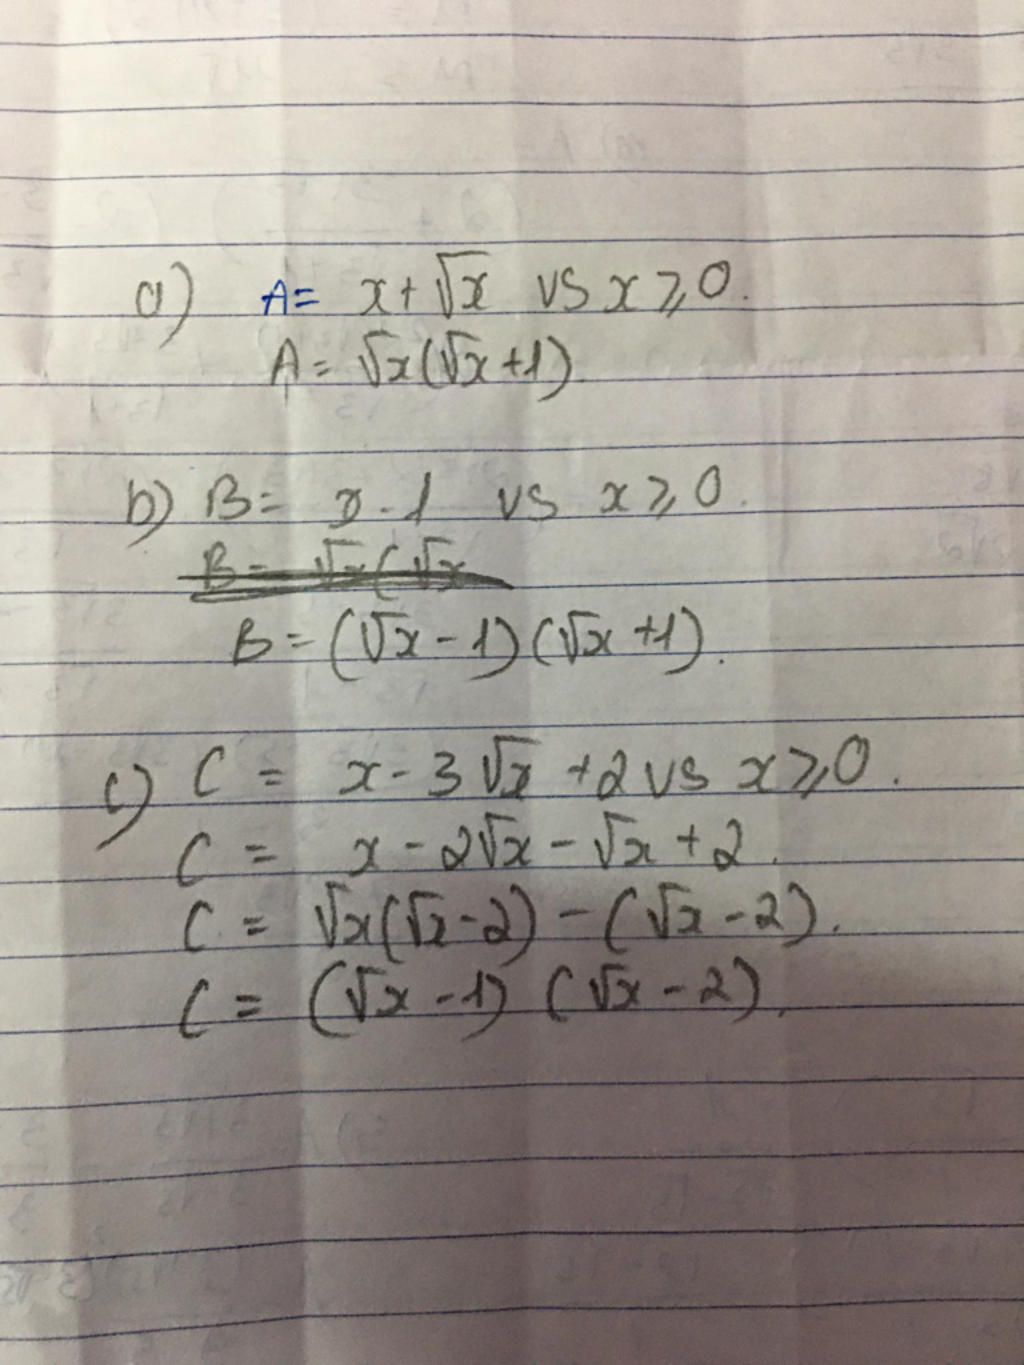 a) A = x + √x vs x ⩾ 0.
A = √x(√x + 1).
b) B = x - 1 vs x ⩾ 0.
B = √x(√x
B = (√x - 1)(√x + 1).
c) C = x - 3√x + 2 vs x ⩾ 0.
C = x - 2√x - √x + 2.
C = √x(√x - 2) - (√x - 2).
C = (√x - 1) (√x - 2).